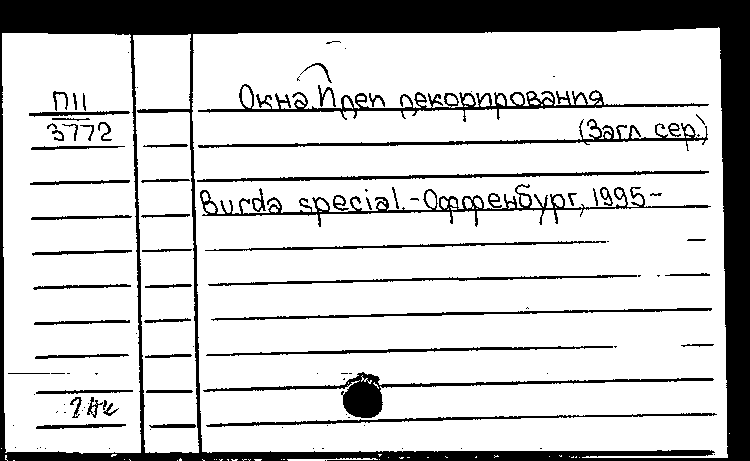 П11
3772
Окна. Идеи декорирования
(Загл. сер.)
Burda special.-Оффенбург, 1995-